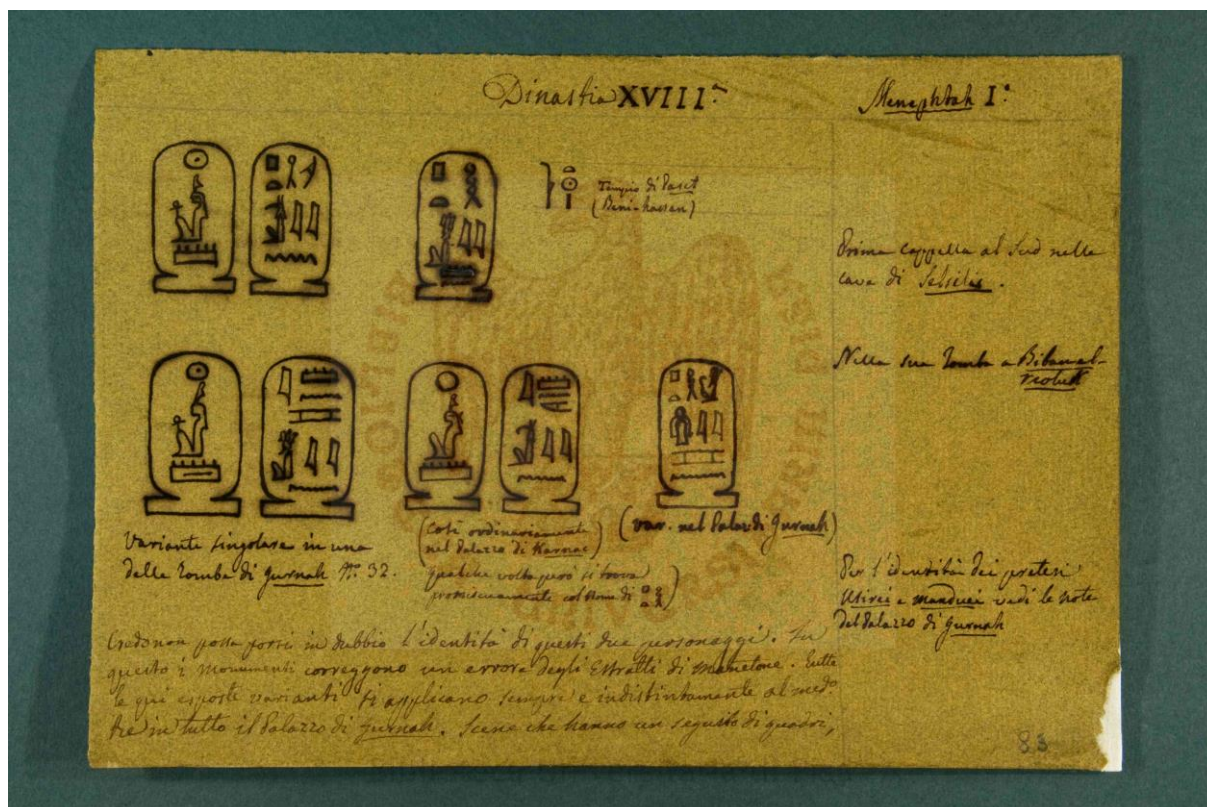 Dinastia XVIII.a
Menephtah I.o
Tempio di Pasct
(Beni-hassan)
Prima cappella al Sud nelle
cave di Selsilis.
Nella sua Tomba a Biban-el-
Molouk
Variante singolare in una
delle Tombe di Gurnah N.o 32.
(Così ordinariamente
nel Palazzo di Karnac)
qualche volta però si trova
promiscuamente col nome di
(var. nel Palaz. di Gurnah)
Per l'identità dei pretesi
Usirei e Manduei vedi le note
del Palazzo di Gurnah
Credo non possa porsi in dubbio l'identità di questi due personaggi. In
questo i Monumenti correggono un errore degli Estratti di Manetone. Tutte
le qui esposte varianti si applicano sempre e indistintamente al med.o
Re in tutto il Palazzo di Gurnah. Scene che hanno un seguito di quadri,
83